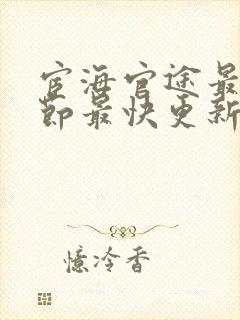 宦海官途最
节最快更新
忆冷香